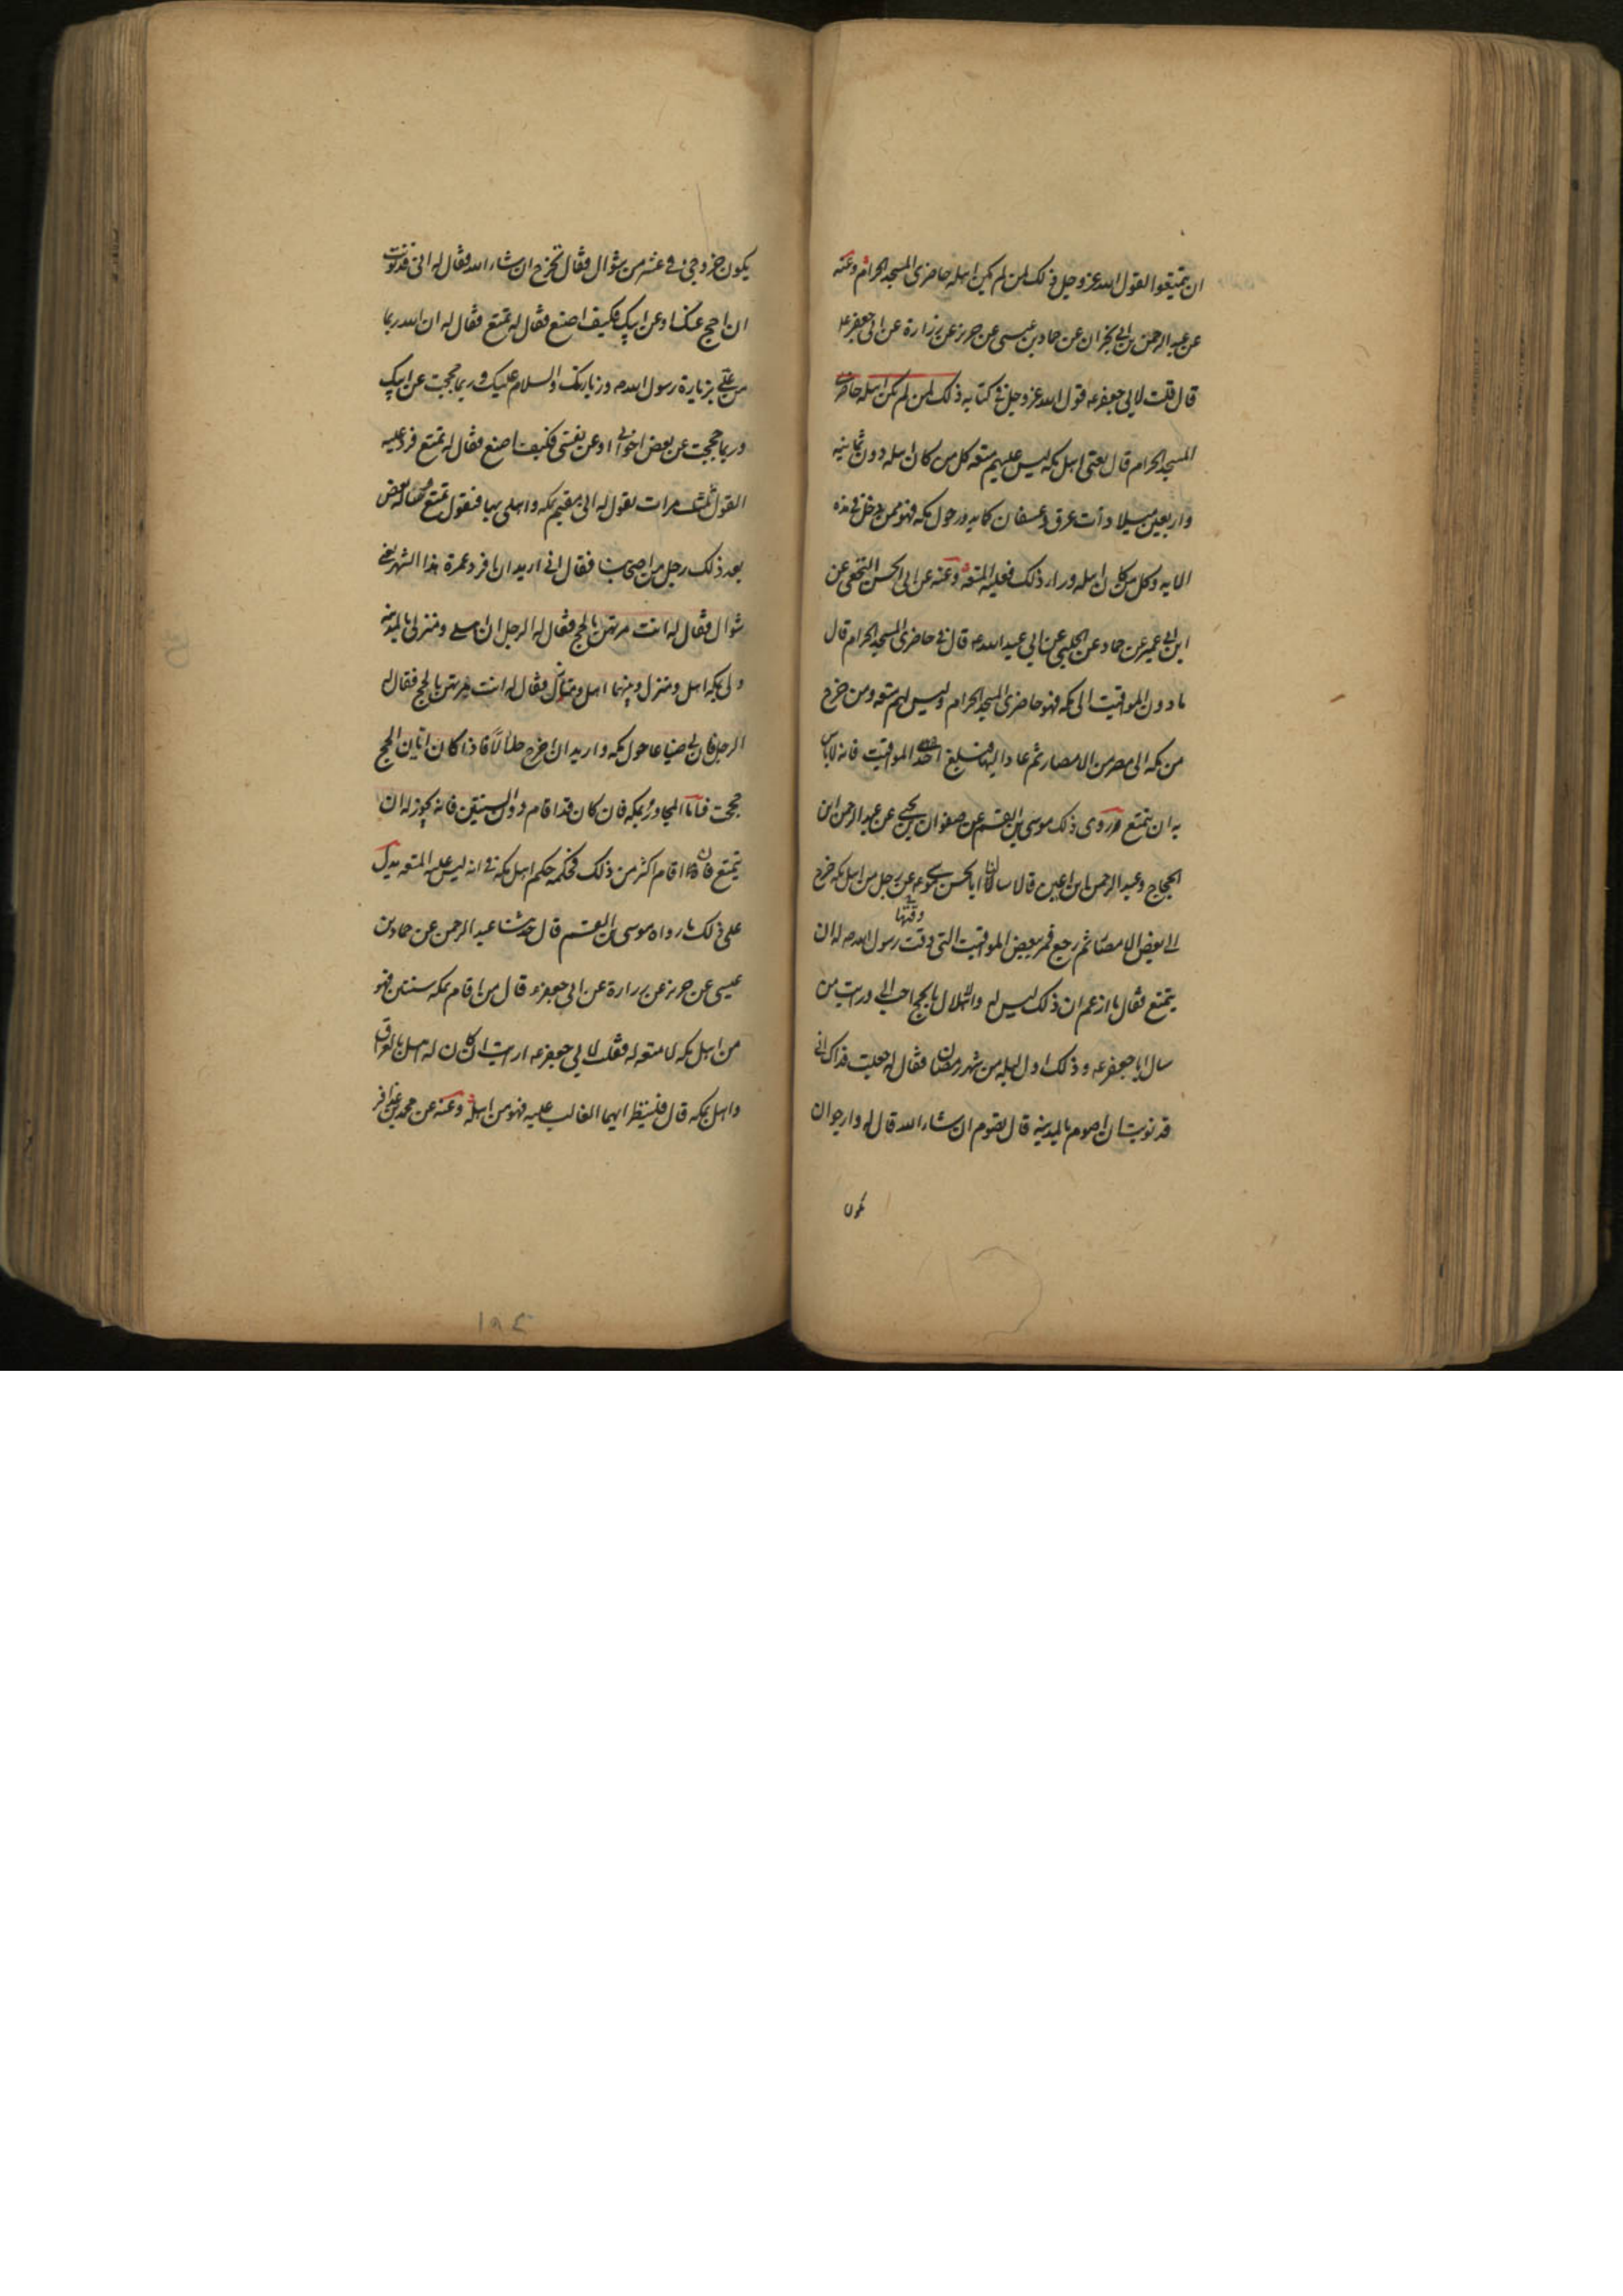 ان يتمتعوا لقول الله عز وجل ذلك لمن لم يكن اهله حاضري المسجد الحرام وعنه
عن عبد الرحمن بن ابي نجران عن حماد بن عيسى عن حريز عن زرارة عن ابي جعفر ع
قال قلت لابي جعفر ع قول الله عز وجل في كتابه ذلك لمن لم يكن اهله حاضري
المسجد الحرام قال يعني اهل مكه ليس عليهم متعه كل من كان اهله دون ثمانيه
واربعين ميلا ذات عرق وعسفان كما يدور حول مكه فهو ممن دخل في هذه
الايه وكل من كان اهله وراء ذلك فعليه المتعه وعنه عن ابي الحسن النخعي عن
ابن ابي عمير عن حماد عن الحلبي عن ابي عبد الله ع قال في حاضري المسجد الحرام قال
ما دون المواقيت الى مكه فهو حاضري المسجد الحرام وليس لهم متعه ومن خرج
من مكه الى مصر من الامصار ثم عاد اليها فبلغ احد المواقيت فانه لا باس
به ان يتمتع روى ذلك موسى بن القسم عن صفوان بن يحيى عن عبد الرحمن ابن
الحجاج وعبد الرحمن ابن اعين قالا سالنا ابا الحسن موسى ع عن رجل من اهل مكه خرج
الى بعض الامصار ثم رجع فمر ببعض المواقيت التي وقت رسول الله ص له ان
وقتها
يتمتع فقال ما ازعم ان ذلك ليس له والاهلال بالحج احب الي ورايت من
سال ابا جعفر ع وذلك اول ليله من شهر رمضان فقال له جعلت فداك اني
قد نويت ان اصوم بالمدينه قال تصوم ان شاء الله قال له وارجو ان
يكون
يكون خروجي في عشر من شوال فقال تخرج ان شاء الله فقال له اني قد نويت
ان احج عنك او عن ابيك فكيف اصنع فقال له تمتع فقال له ان الله ربما
من علي بزيارة رسول الله ص وزيارتك والسلام عليك وربما حججت عن ابيك
وربما حججت عن بعض اخواني او عن نفسي فكيف اصنع فقال له تمتع فرد عليه
القول ثلث مرات يقول له اني مقيم بمكه واهلي بها فيقول تمتع فساله بعض
بعد ذلك رجل من اصحابنا فقال اني اريد ان افرد عمرة هذا الشهر يعني
شوال فقال له انت مرتهن بالحج فقال له الرجل ان اهلي ومنزلي بالمدينه
ولي بمكه اهل ومنزل وبينهما اهل ومنازل فقال له انت مرتهن بالحج فقال له
الرجل فان لي ضياعا حول مكه واريد ان اخرج حلالا فاذا كان ابان الحج
حججت فاما المجاور بمكه فان كان قد اقام دون السنتين فانه يجوز له ان
يتمتع فان اقام اكثر من ذلك فحكمه حكم اهل مكه في انه ليس عليه المتعه يدل
على ذلك ما رواه موسى بن القسم قال حدثنا عبد الرحمن عن حماد بن
عيسى عن حريز عن زرارة عن ابي جعفر ع قال من اقام بمكه سنتين فهو
من اهل مكه لا متعه له فقلت لابي جعفر ع ارايت ان كان له اهل بالعراق
واهل بمكه قال فلينظر ايهما الغالب عليه فهو من اهله وعنه عن محمد بن عذافر
١٨٤